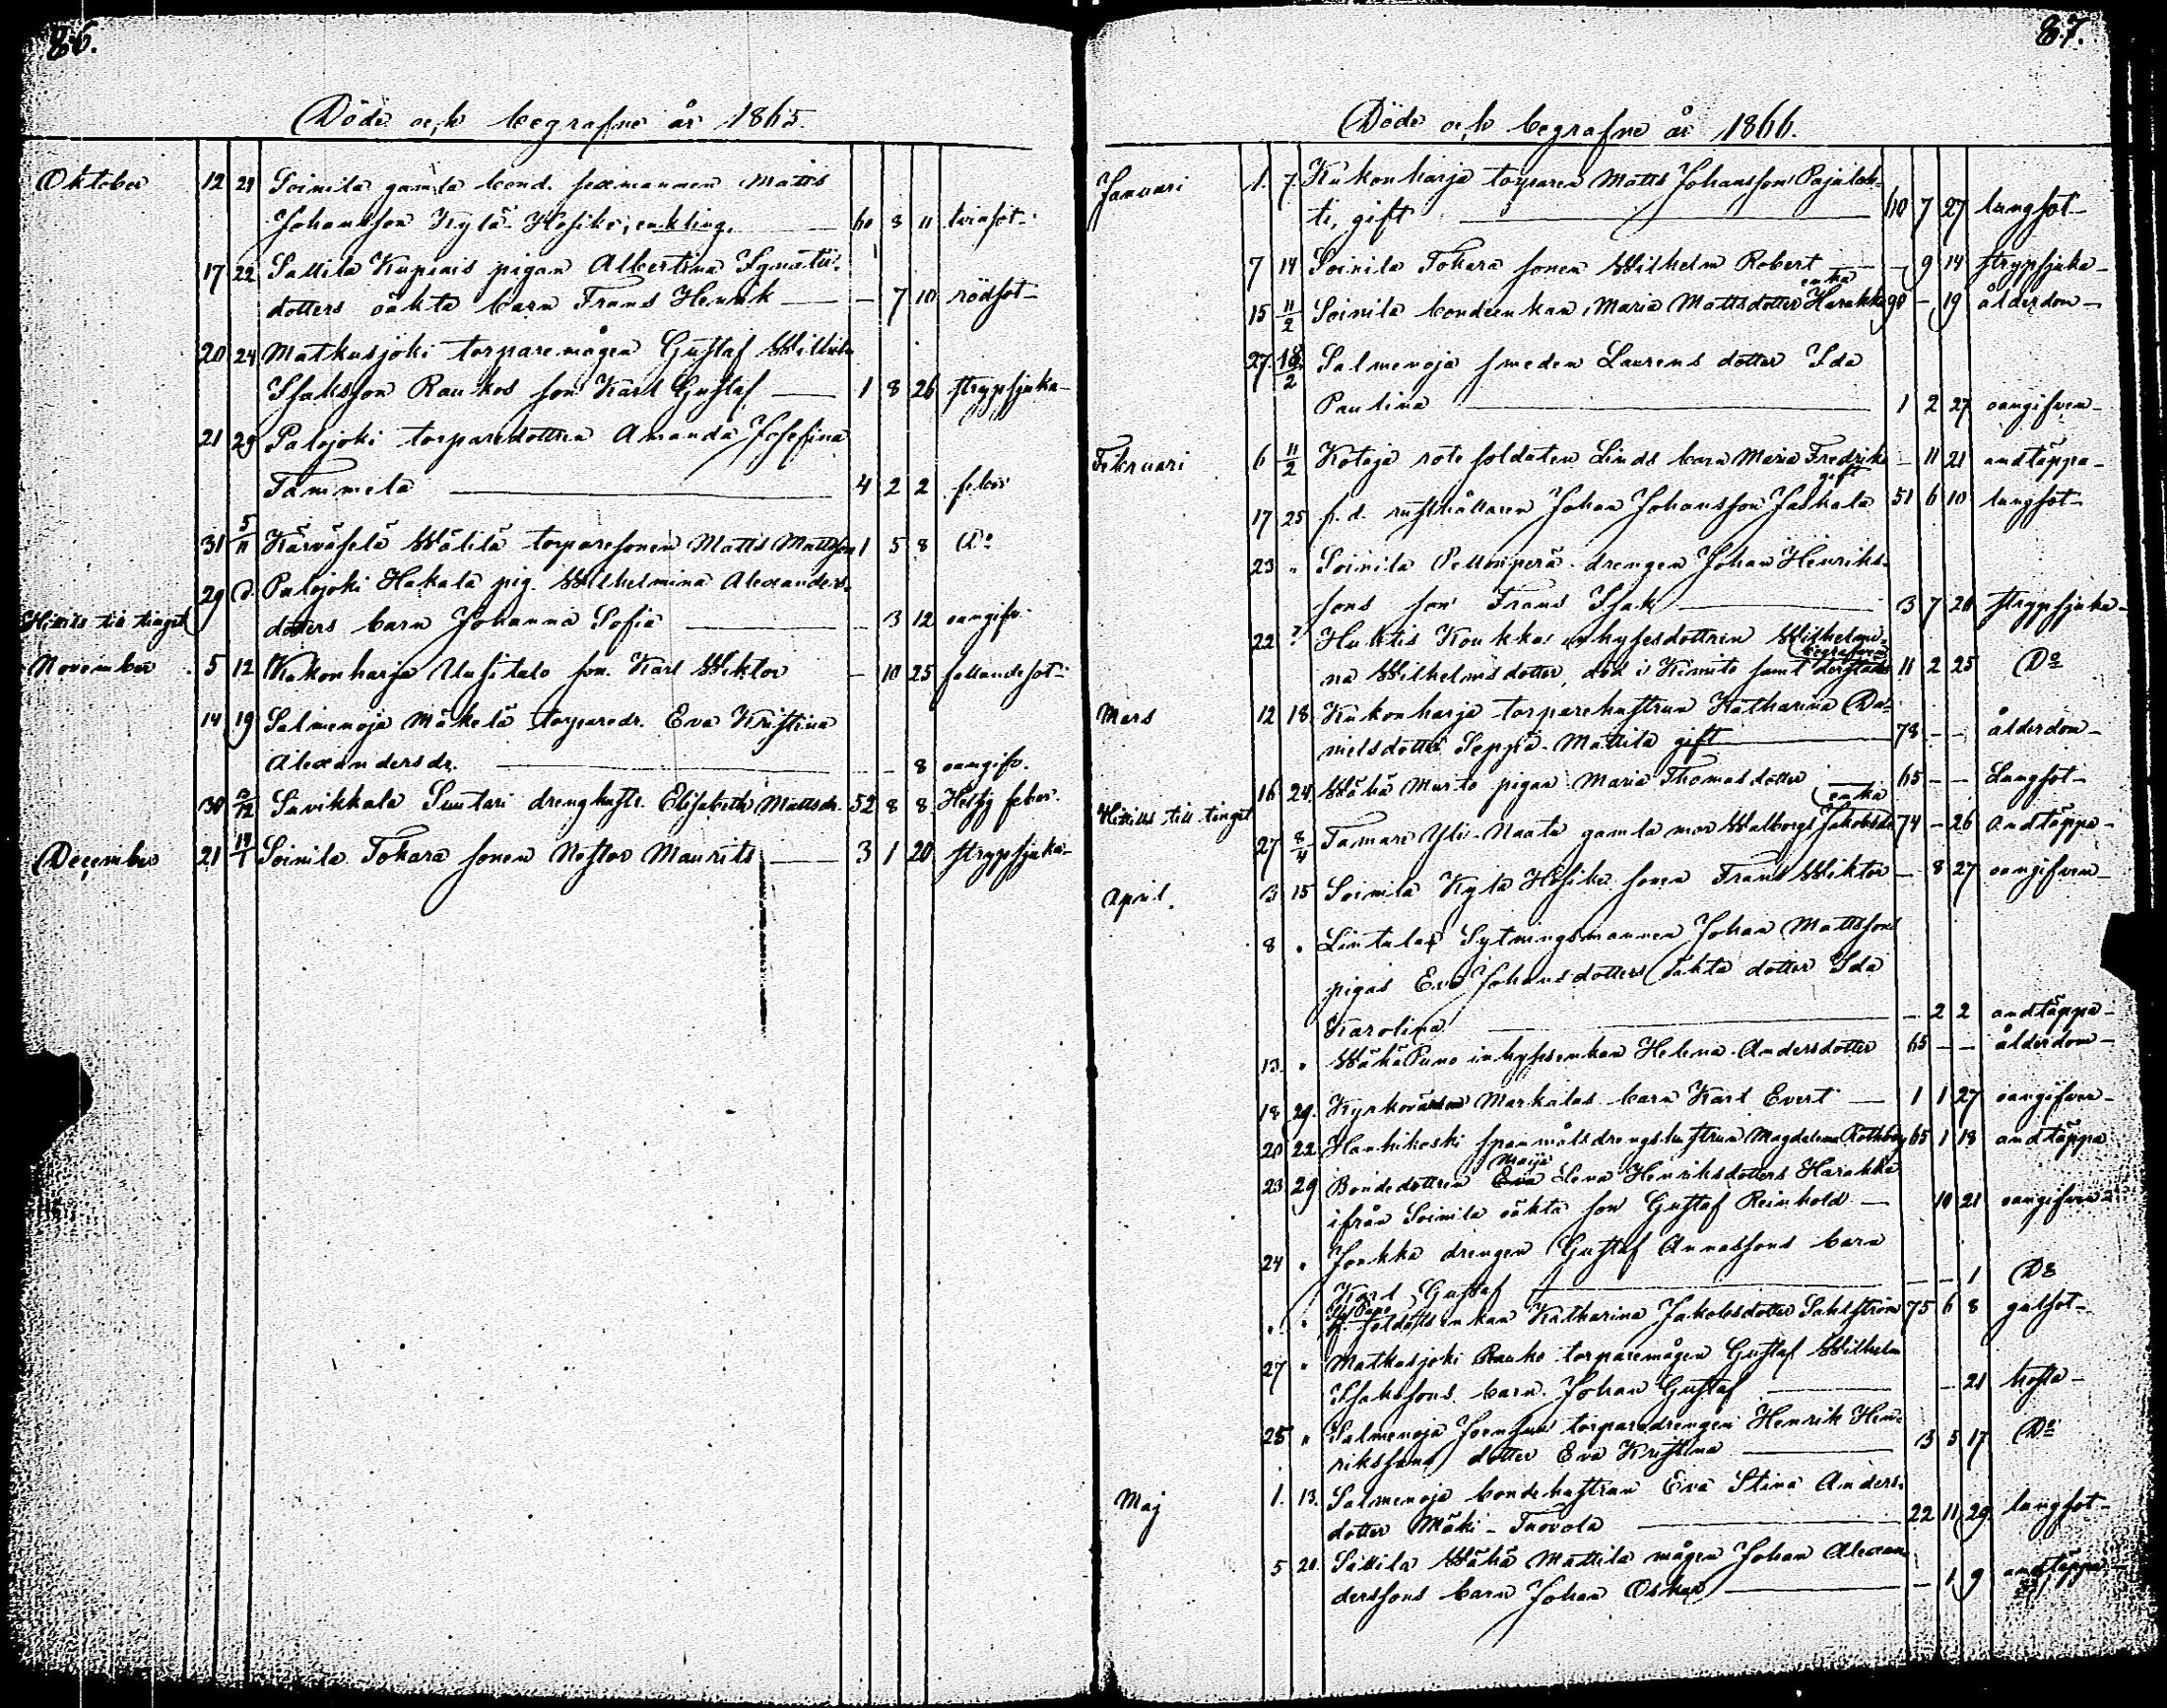 86.
Döde och begrafne år 1865.
Oktober 12 29 Soinila gamla bond. sexmannen Matts
Johansson Kylä Hosike, enkling. 60 8 11
17 22 Sallila Kupiais pigan Albertina
dotters oäkta barn Frans Henrik — 7 10 rödsot
20 24 Matkusjoki torparemågen Gustaf Wilhelm
Isaksson Raukos son Karl Gustaf 1 8 26 strypsjuka
21 29 Palojoki torparedottren Amanda Josefina
Tammela 4 2 2 feber
31 5/11 Kärväselä Wälilä torparesonen Matts Mattsson 1 5 8 Do
29 d. Palojoki Hakala pig. Wilhelmina Alexanders-
Hittills till tinget dotters barn Johanna Sofia — 3 12 oangifv.
November 5 12 Kukonharja Uusitalo son Karl Wiktor — 10 25 fallandesot
14 19 Salmenoja Mäkelä torparedr. Eva Kristina
Alexandersdr. — — 8 oangifv.
30 2/12 Savikkala Suutari drenghustr. Elisabeth Mattsdr. 52 8 8 Hetsig feber.
December 21 14/1 Soinila Tokara sonen Nestor Maurits 3 1 20 strypsjuka
87.
Döde och begrafne år 1866.
Januari 1. 7 Kukonharja torparen Matts Johansson Pajulah-
ti, gift 60 7 27 lungsot
7 14 Soinila Tokara sonen Wilhelm Robert — 9 14 strypsjuka
enka
15 11/2 Soinila bondeenkan Maria Mattsdotter Harakka 90 — 19 ålderdom
27. 18/2 Salmenoja smeden Laurens dotter Ida
Paulina 1 2 27 oangifven
Februari 6 11/2 Kotoja rote soldaten Linds barn Maria Fredrika — 11 21 andtäppa
gift
17 25 f. d. rusthållaren Johan Johansson Jaskala 51 6 10 lungsot
23 " Soinila Pellonperä drengen Johan Henriks-
sons son Frans Isak 3 7 26 strypsjuka
22 ? Huhtis Koukkas inhysesdottren Wilhelmi-
begrafven
na Wilhelmsdotter, död i Kimito samt derstädes 11 2 25 Do
Mars 12 18 Kukonharja torparehustrun Katharina Da-
nielsdotter Seppä-Mattila gift 78 — — ålderdom
16 24. Wähä Murto pigan Maria Thomasdotter 65 — — Lungsot
enka
Hittills till tinget 27 8/4 Tamare Yli-Naata gamla mor Walborg Jakobsdr 74 — 26 Andtäppa
April. 3 15 Soinila Kylä Hosike sonen Frans Wiktor — 8 27 oangifven
8 " Lintula Sytningsmannen Johan Mattssons
pigas Eva Johansdotters oäkta dotter Ida
Karolina — 2 2 andtäppa
13. " Wähä Puno inhysenkan Helena Andersdotter 65 — — ålderdom
18 29. Kyrkovärden Markulas barn Karl Evert 1 1 27 oangifven
20 22. Hanhikoski spanmålsdrengshustrun Magdelena Rothberg 65 1 18 andtäppa
Maija
23 29 Bondedottren Eva Lena Henriksdotters Harakka
ifrån Soinila oäkta son Gustaf Reinhold 10 21 oangifven
24 " Jonkka drengen Gustaf Annassons barn
Karl Gustaf — — 1 Do
" " soldatsenkan Katharina Jakobsdotter Sahlström 75 6 8 gulsot
27 " Matkusjoki Rauko torparemågen Gustaf Wilhelm
Isakssons barn Johan Gustaf — 21 hosta
25 " Salmenoja Joensuu torparedrengen Henrik Hen-
rikssons dotter Eva Kristina 3 5 17 Do
Maj 1. 13. Salmenoja bondehustrun Eva Stina Anders-
dotter Mäki-Tuovola 22 11 29 lungsot
5 20. Sallila Wähä Mattila mågen Johan Alexan
derssons barn Johan Oskar — 1 9 andtäppa